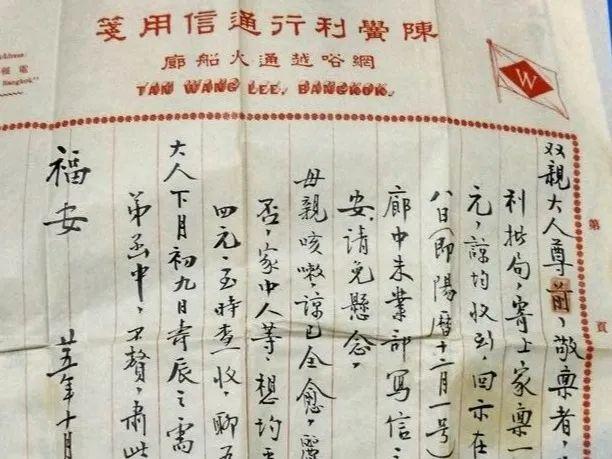 陳黌利行通信用箋
網峪越通大船廊
TAN WANG LEE, BANGKOK.
Address:
Bangkok"
W
第 頁
双親大人尊前，敬稟者，
利批局，寄上家稟一
元，諒均收到，回示在
八日(即陽曆十二月一号)
廊中朱業部寫信之
安，請免懸念，
母親咳嗽，諒已全愈，
否，家中人等，想均
四元，至時查收，聊
大人下月初九日壽辰之需
第函中，不贅，肅此
福安
廿五年十月